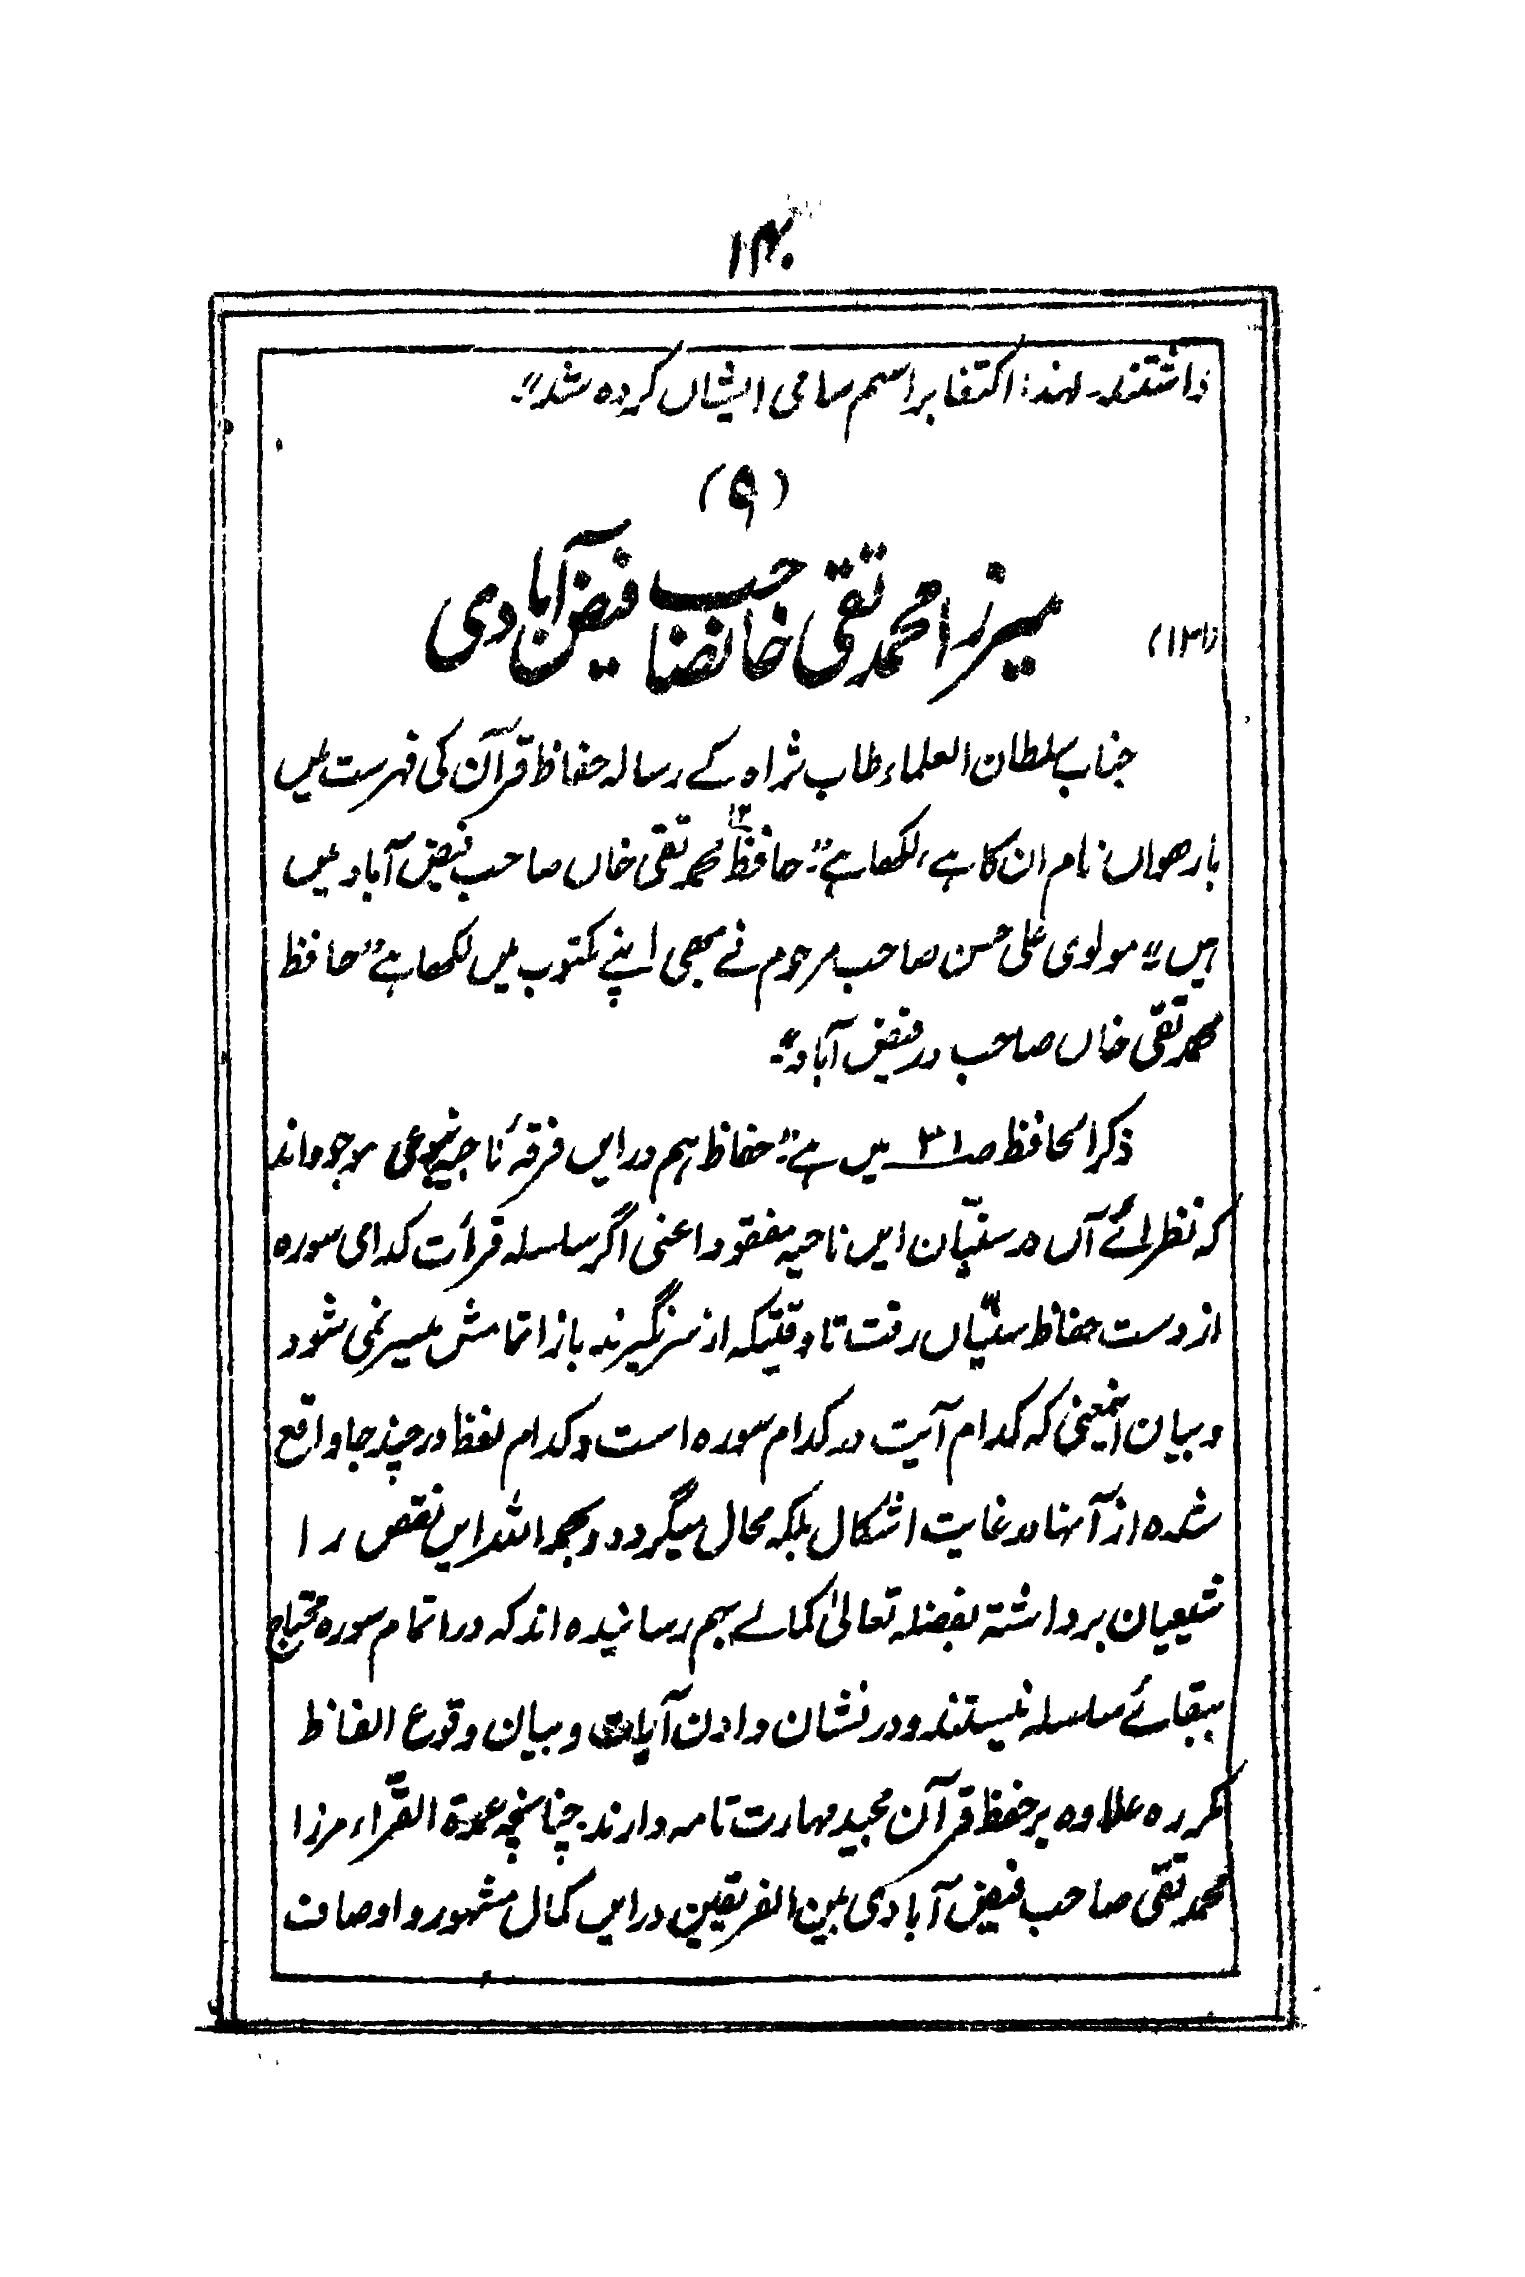 ۱۴۰
داشتند۔ لہٰذا اکتفا بر اسم سامی ایشاں کردہ شد"۔
(۹)
(۱۳۱) میرزا محمد تقی خانصاحب فیض آبادی
جناب سلطان العلماء طاب ثراہ کے رسالہ حفاظ قرآن کی فہرست میں
بارھواں نام ان کا ہے، لکھا ہے:" حافظ ۱۲ محمد تقی خاں صاحب فیض آباد میں
ہیں" مولوی علی حسن صاحب مرحوم نے بھی اپنے مکتوب میں لکھا ہے" حافظ
محمد تقی خاں صاحب در فیض آباد"۔
ذکر الحافظ صـ ۳۱ میں ہے:" حفاظ ہم در ایں فرقۂ ناجیہ بنوعی موجود اند
کہ نظرائے آں در سنیّان ایں ناحیہ مفقود اعنی اگر سلسلہ قرأت کدامی سورہ
از دست حفاظ سنیّاں رفت تا وقتیکہ از سر نگیرند باز اتمامش میسر نمی شود
و بیان اینمعنی کہ کدام آیت در کدام سورہ است و کدام لفظ در چند جا واقع
شدہ از آنہا در غایت اشکال بلکہ محال میگردد و بحمد اللہ ایں نقص را
شیعیان برداشتہ بفضلہ تعالیٰ کمالے بہم رسانیدہ اند کہ در اتمام سورہ محتاج
ببقائے سلسلہ نیستند و در نشان دادن آیات و بیان وقوع الفاظ
مکررہ علاوہ بر حفظ قرآن مجید مہارت تامہ دارند۔ چنانچہ عمدۃ القرّاء مرزا
محمد تقی صاحب فیض آبادی بین الفریقین در ایں کمال مشہور و اوصاف